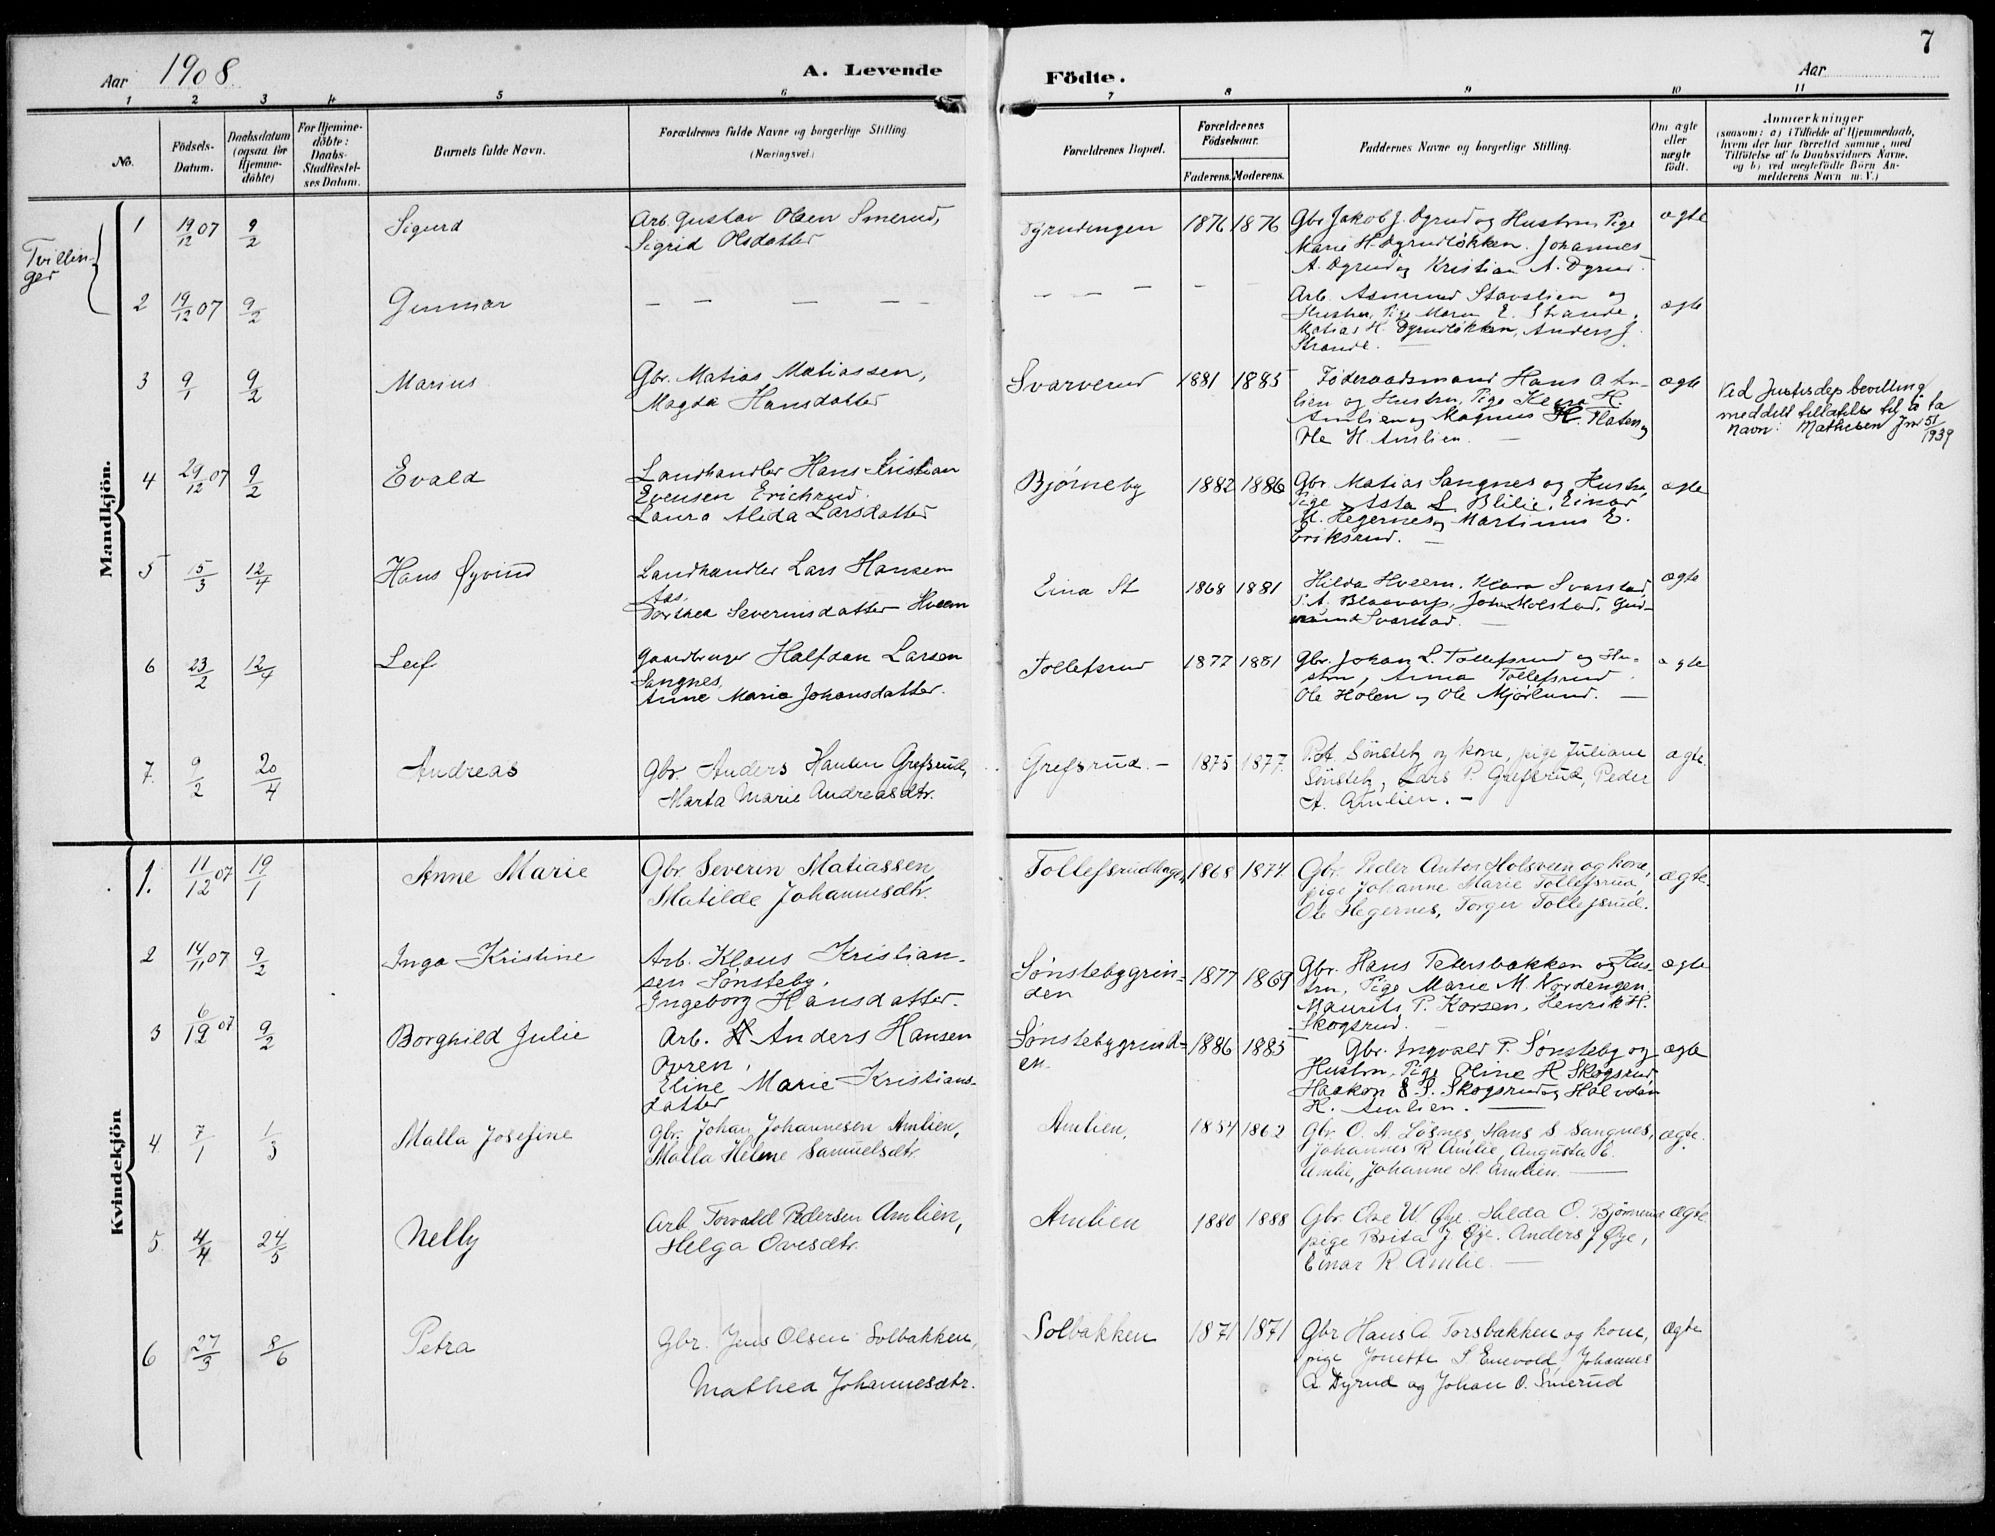 7
Aar 1908. A. Levende Födte. Aar
1 2 3 4 5 6 7 8 9 10 11
No. Födsels-Datum. Daabsdatum (ogsaa for Hjemme-döbte) For Hjemme-döbte: Daabs-Stadfæstel-ses Datum. Barnets fulde Navn. Forældrenes fulde Navne og borgerlige Stilling (Næringsvei.) Forældrenes Bopæl. Forældrenes Födselsaar. Faderens. Moderens. Faddernes Navne og borgerlige Stilling. Om ægte eller uægte födt. Anmærkninger
(saasom: a) i Tilfælde af Hjemmedaab,
hvem der har forrettet samme, med
Tilföielse af to Daabsvidners Navne,
og b) ved uægtefödte Börn An-
melderens Navn m. V.)
Mandkjön.
Tvillin-
ger
1 19/12 07 9/2 Sigurd Arb. Gustav Olsen Smerud,
Sigrid Olsdatter
Dyrudengen 1876 1876 Gbr. Jakob J. Dyrud og Hustru, Pige
Marie H. Dyrudløkken. Johannes
A. Dyrud og Kristian A. Dyrud.
ægte
2 19/12 07 9/2 Gunnar — — — — —
— — — — — — Arb. Asmund Stavslien og
Hustru, Pige Maren E. Strande,
Matias H. Dyrudløkken, Anders J.
Strande. —
ægte
3 9/1 9/2 Marius Gbr. Matias Matiassen,
Magda Hansdatter
Svarverud 1881 1885 Føderaadsmand Hans O. Am-
lien og Hustru, Pige Klara H.
Amlien og Magnus H. Flaten og
Ole H. Amlien. —
ægte
Ved Justisdep bevilling
meddelt tillatelse til å ta
navn: Mathisen Jnr 51/1939
4 29/12 07 9/2 Evald Landhandler Hans Kristian
Evensen Erichrud.
Laura Alida Larsdatter
Bjørneby 1882 1886 Gbr. Matias Sangnes og Hustru,
Pige Asta L. Blilie, Einar
M. Hegernes og Martinus E.
Eriksrud. —
ægte
5 15/3 12/4 Hans Øyvind Landhandler Lars Hansen
Aas,
Dorthea Severinsdatter Hveem
Eina St 1868 1881 Hilda Hveem, Klara Svarstad,
P. A. Blaavarp, Johan Molstad, Gud-
mund Svarstad. —
ægte
6 23/2 12/4 Leif Gaardbruger Halfdan Larsen
Sangnes,
Anne Marie Johansdatter.
Tollefsrud 1877 1881 Gbr. Johan L. Tollefsrud og Hu-
stru, Anna Tollefsrud.
Ole Holen og Ole Mjørlund. —
ægte
7. 9/2 20/4 Andreas Gbr. Anders Hansen Grefsrud,
Marta Marie Andreasdtr.
Grefsrud. — 1875 1877. P. A. Sønsteby og kone, pige Juliane
Sønsteby, Lars P. Grefsrud, Peder
A. Amlien. —
ægte.
Kvindekjön
1. 11/12 07 19/1 Anne Marie Gbr. Severin Matiassen,
Matilde Johannesdtr.
Tollefsrudhagen 1868 1874 Gbr. Peder Anton Holsveen og kone,
pige Johanne Marie Tollefsrud,
Ole Hegernes, Torger Tollefsrud.
ægte.
2 14/11 07 9/2 Inga Kristine Arb. Klaus Kristian-
sen Sønsteby,
Ingeborg Hansdatter.
Sønstebygrin-
den
1877 1869 Gbr. Hans Petersbakken og Hus-
tru, Pige Marie M. Nordengen,
Maurits P. Korsen, Henrik H.
Skogsrud. —
ægte
3 6/12 07 9/2 Borghild Julie Arb. Anders Hansen
Øvren,
Eline Marie Kristians-
datter
Sønstebygrind-
en.
1886 1885 Gbr. Ingvald P. Sønsteby og
Hustru, Pige Oline H. Skogsrud,
Haakon S. Skogsrud og Halvdan
H. Amlien. —
ægte
4 7/1 1/3 Malla Josefine Gbr. Johan Johannesen Amlien,
Malla Helene Samuelsdtr.
Amlien, 1854 1862 Gbr. O. A. Løsnes, Hans S Sangnes,
Johannes R Amlie, Augusta E.
Amlie, Johanne H. Amlien. —
ægte.
5 4/4 24/5 Nelly Arb. Torvald Pedersen Amlien,
Helga Ovesdtr.
Amlien 1880 1888 Gbr. Ove W. Øye, Hilda O. Bjørnerud
pige Brita J Øje. Anders J Øye,
Einar R Amlie. —
ægte.
6 27/3 8/6 Petra Gbr. Jens Olsen Solbakken,
Mathea Johannesdtr.
Solbakken 1871 1871 Gbr Hans A. Torsbakken og kone,
pige Jonette S. Enevold, Johannes
A Dyrud og Johan O. Smerud
ægte